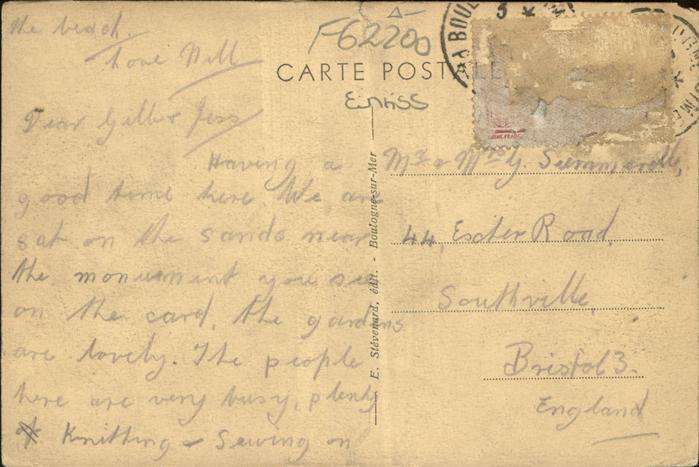 the beach.
Love Will
Dear Gilb & Jess
Having a
good time here. We are
sat on the sands near
the monument you see
on the card, the gardens
are lovely. The people
here are very busy, plenty
of Knitting & Sewing on
F62200
CARTE POSTALE
E. Stévenard, édit. - Boulogne-sur-Mer
Mr & Mrs G.
44, Exeter Road,
Southville,
Bristol 3.
England